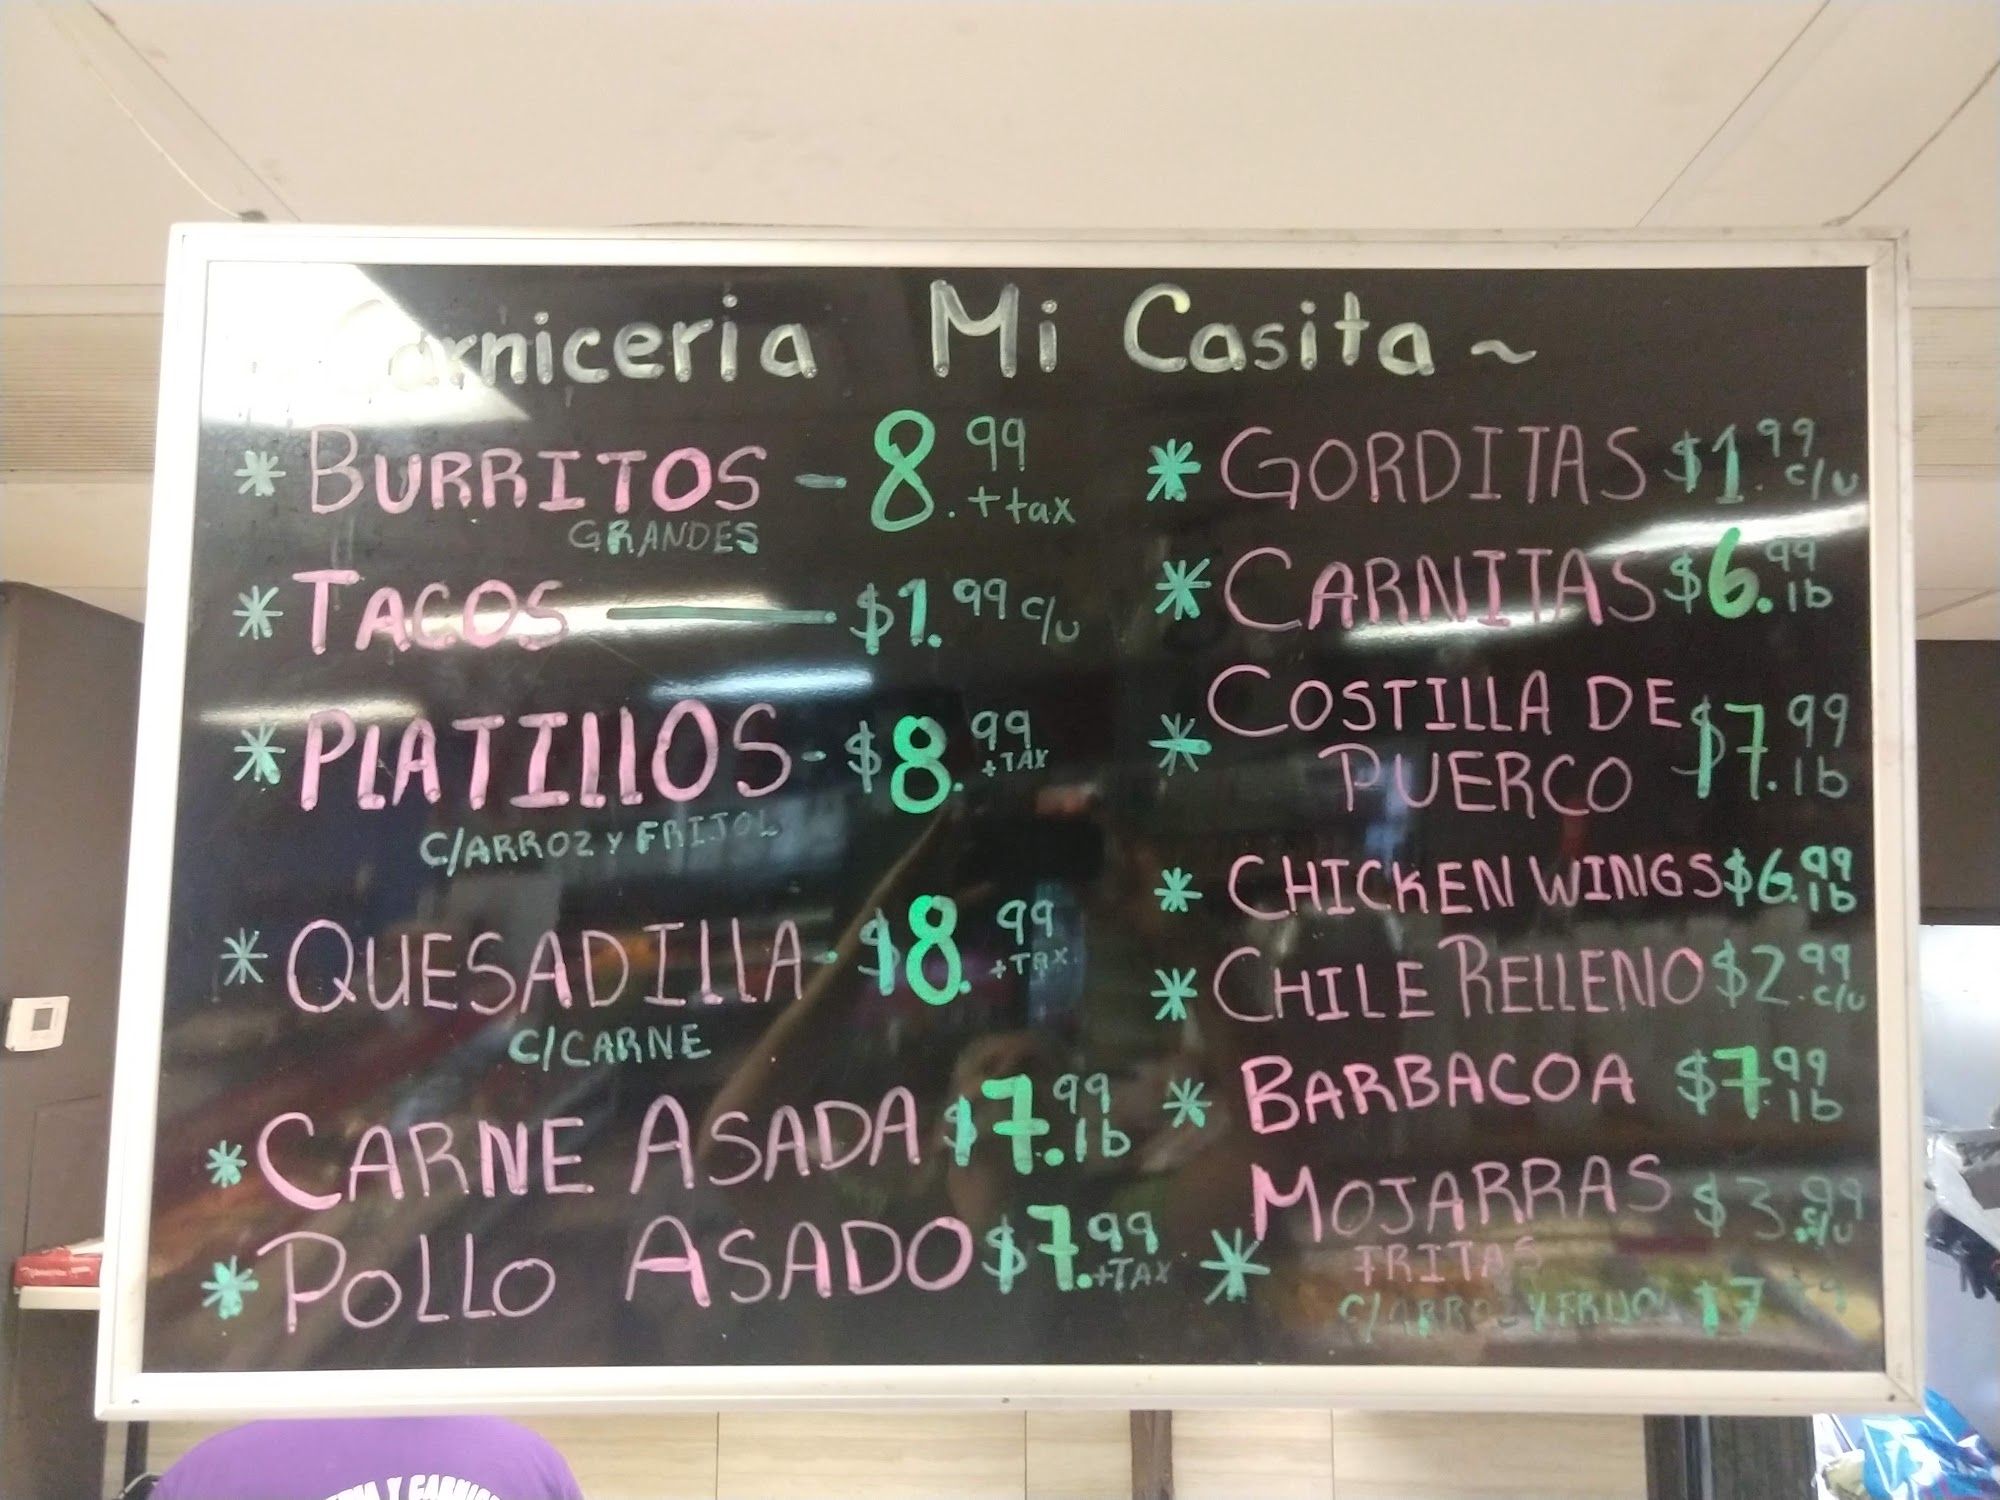 Carniceria Mi Casita ~
* BURRITOS - 8.99 + tax
GRANDES
* TACOS — $1.99 c/u
* PLATILLOS - $8.99 + TAX
C/ARROZ Y FRIJOL
* QUESADILLA - $8.99 + TAX
C/CARNE
* CARNE ASADA $7.99 lb
* POLLO ASADO $7.99 + TAX
* GORDITAS $1.99 c/u
* CARNITAS $6.99 lb
* COSTILLA DE PUERCO $7.99 lb
* CHICKEN WINGS $6.99 lb
* CHILE RELLENO $2.99 c/u
* BARBACOA $7.99 lb
* MOJARRAS $3.99 c/u
FRITAS
C/ARROZ Y FRIJOL $7